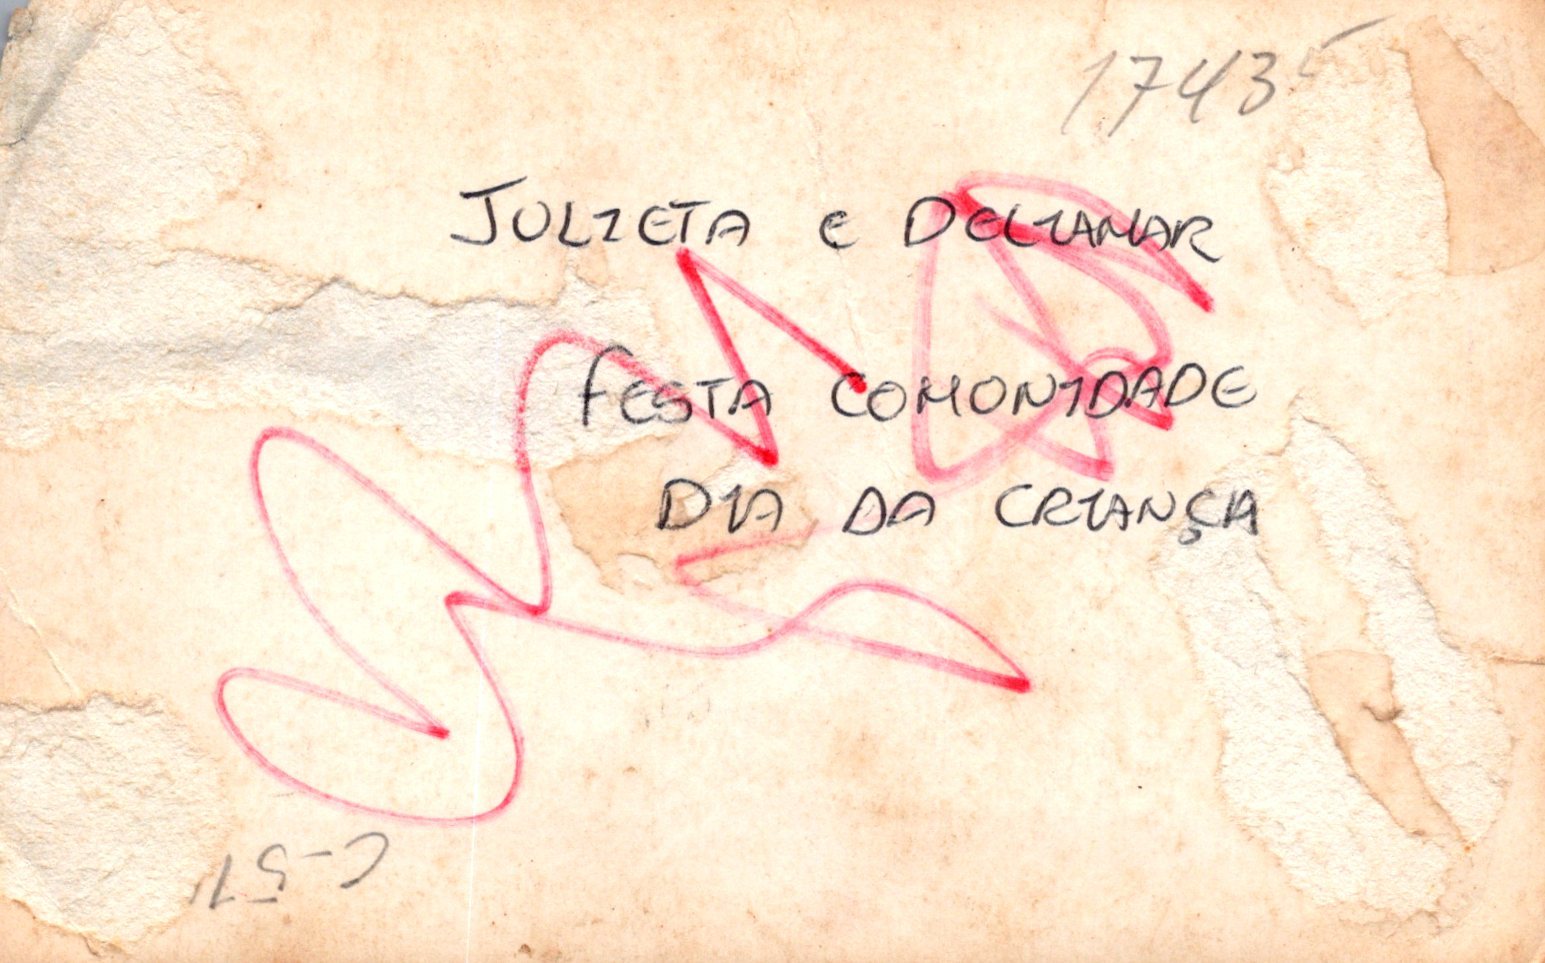 17435
JULIETA e DELIAMAR
FESTA COMONIDADE
DIA DA CRIANÇA
C-51